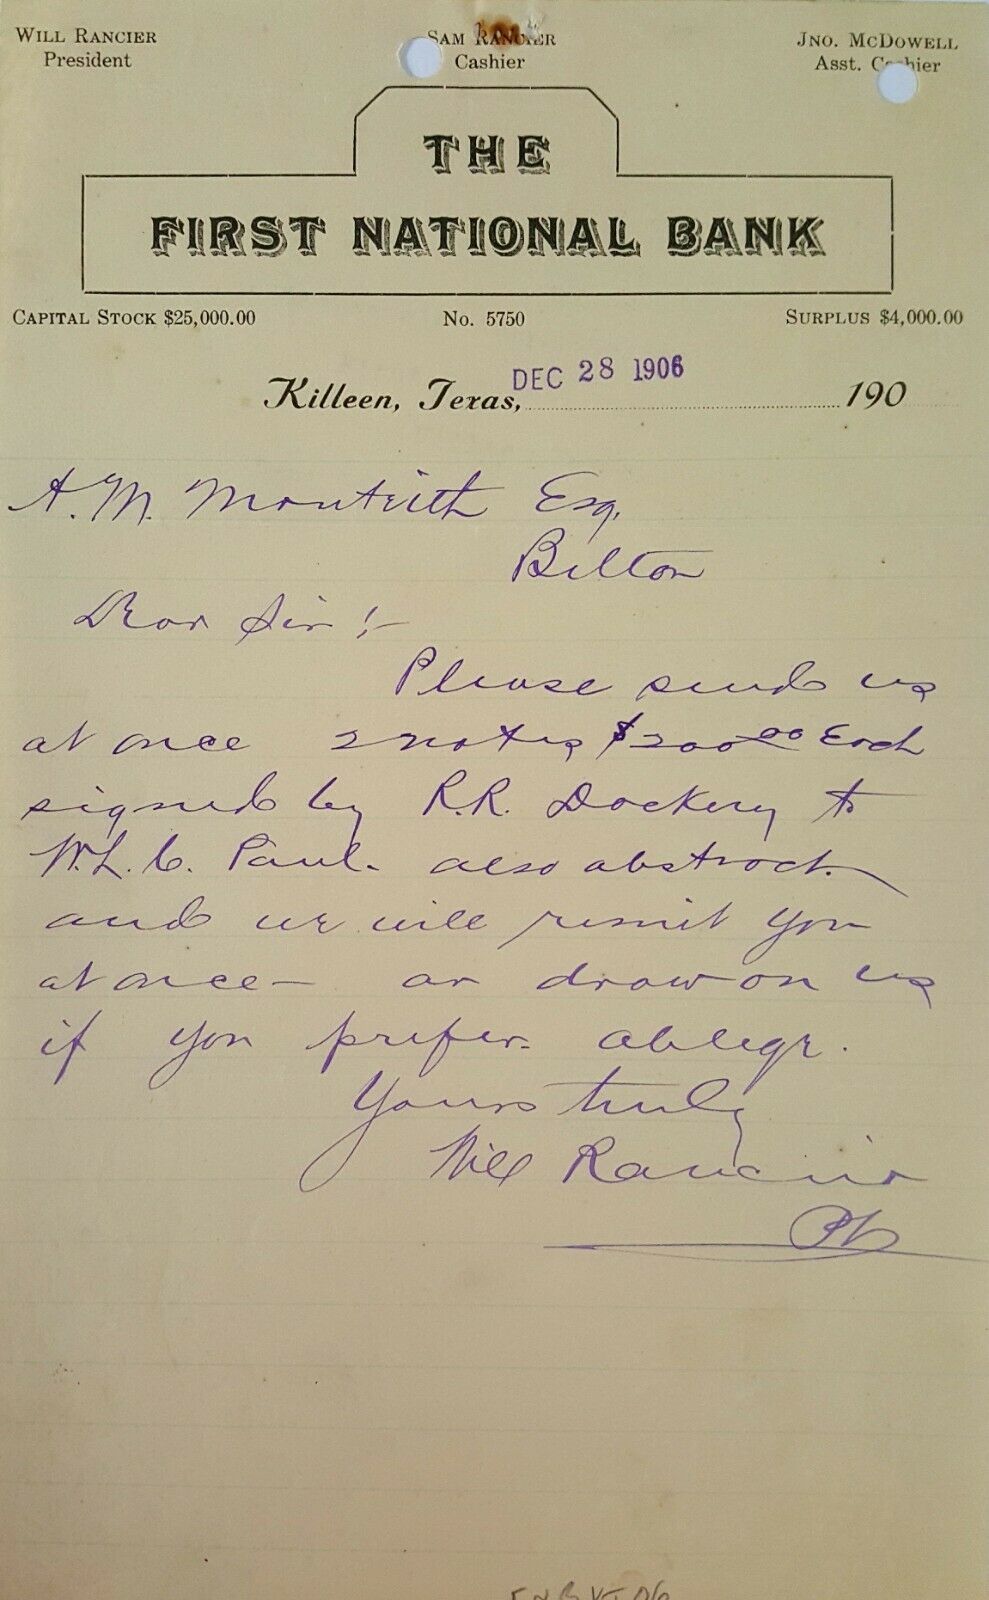 WILL RANCIER
President
SAM RANCIER
Cashier
JNO. MCDOWELL
Asst. Cashier
THE
FIRST NATIONAL BANK
CAPITAL STOCK $25,000.00
No. 5750
SURPLUS $4,000.00
Killeen, Texas, DEC 28 1906 190
A. M. Monteith Esq.
Belton
Dear Sir!-
Please send us
at once 2 notes $200.00 Each
signed by R.R. Dockery to
W. L. C. Paul. also abstract
and we will remit you
at once - or draw on us
if you prefer. oblige.
Yours truly
Will Rancier